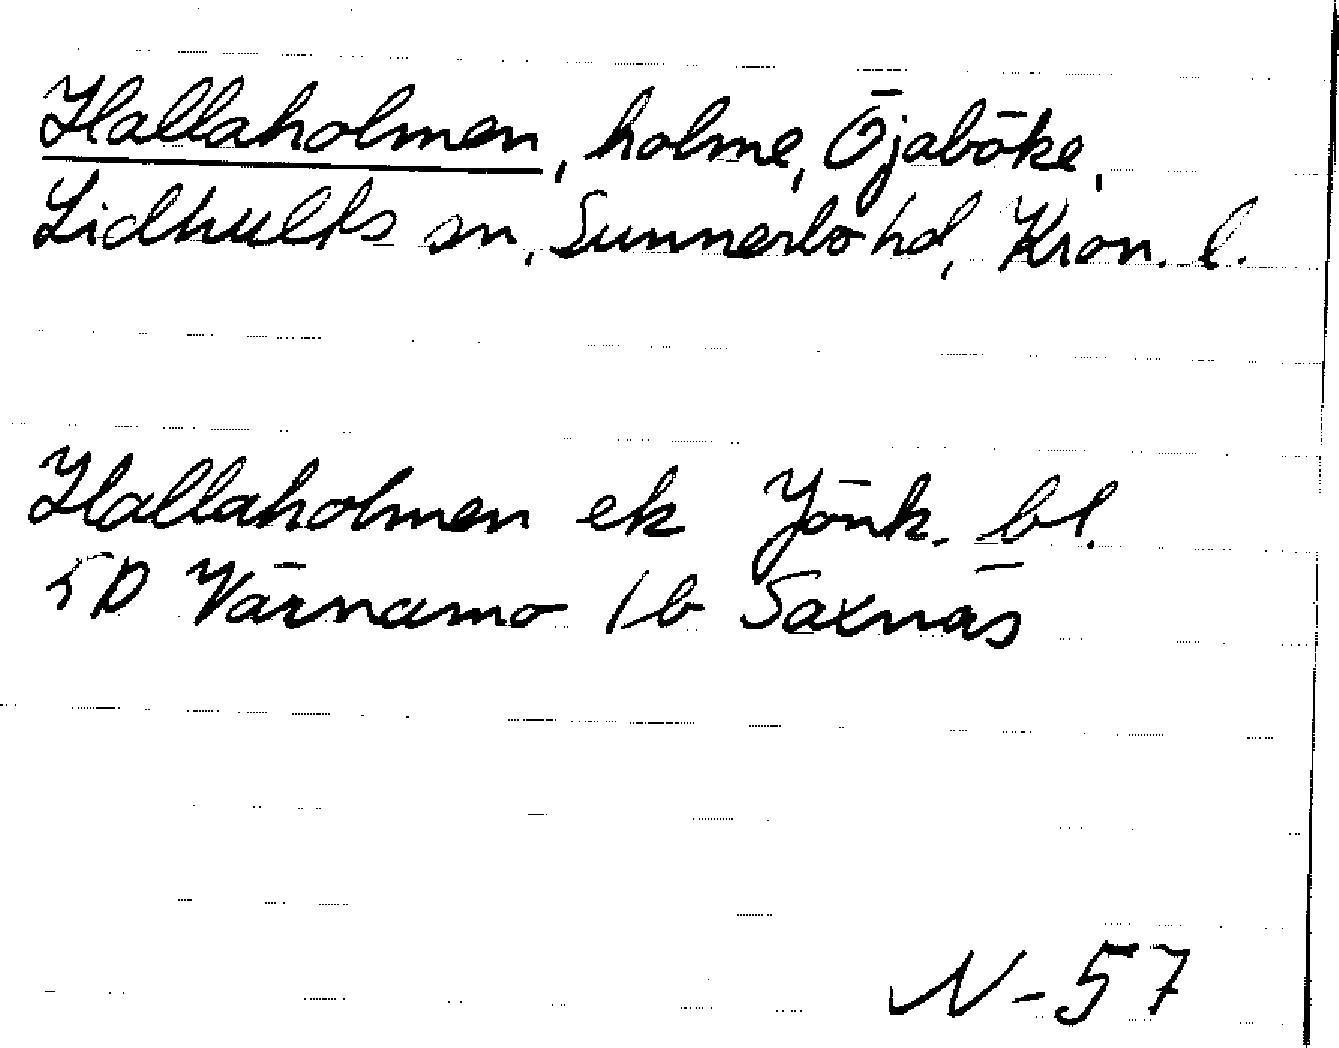 Hallaholmen, holme, Öjaböke,
Lidhults sn, Sunnerbo hd, Kron. l.
Hallaholmen ek Jönk. bl.
5D Värnamo 1b Saxnäs
N-57